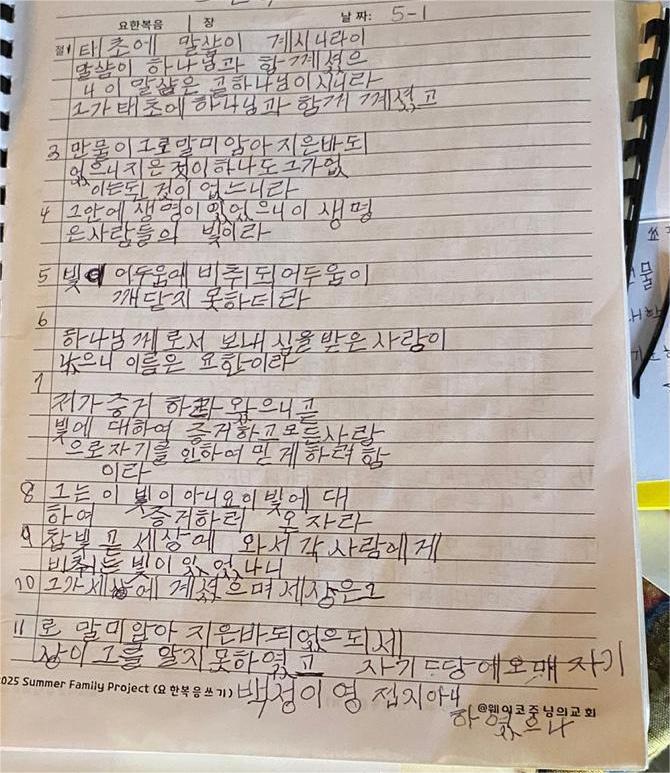 요한복음 | 장 날 짜: 5-1
절1 태초에 말삼이 계시니라이
말삼이 하나님과 함께계셨으
니 이 말삼은 곧하나님이시니라
그가태초에하나님과 함께 계셨고
3 만물이그로말미암아지은바되
었으니지은것이하나도그가없
이는된것이없느니라
4 그안에생명이있었으니이 생명
은사람들의 빛이라
5 빛이 어두움에비취되어두움이
깨닫지 못하더라
6
하나님께로서 보내심을받은사람이
났으니 이름은 요한이라
7
저가증거하러 왔으니곧
빛에 대하여 증거하고모든사람
으로자기를인하여믿게하려함
이라
8 그는이 빛이아니요이빛에 대
하여 증거하러 온 자라
9 참빛 곧 세상에 와서각사람에게
비취는빛이있었나니
10 그가세상에계셨으며세상은그
11 로 말미암아 지은바되었으되세
상이그를알지못하였고 자기 땅에오매 자기
2025 Summer Family Project (요한복음쓰기) 백성이영접지아니
@웨이코주님의교회
하였으나